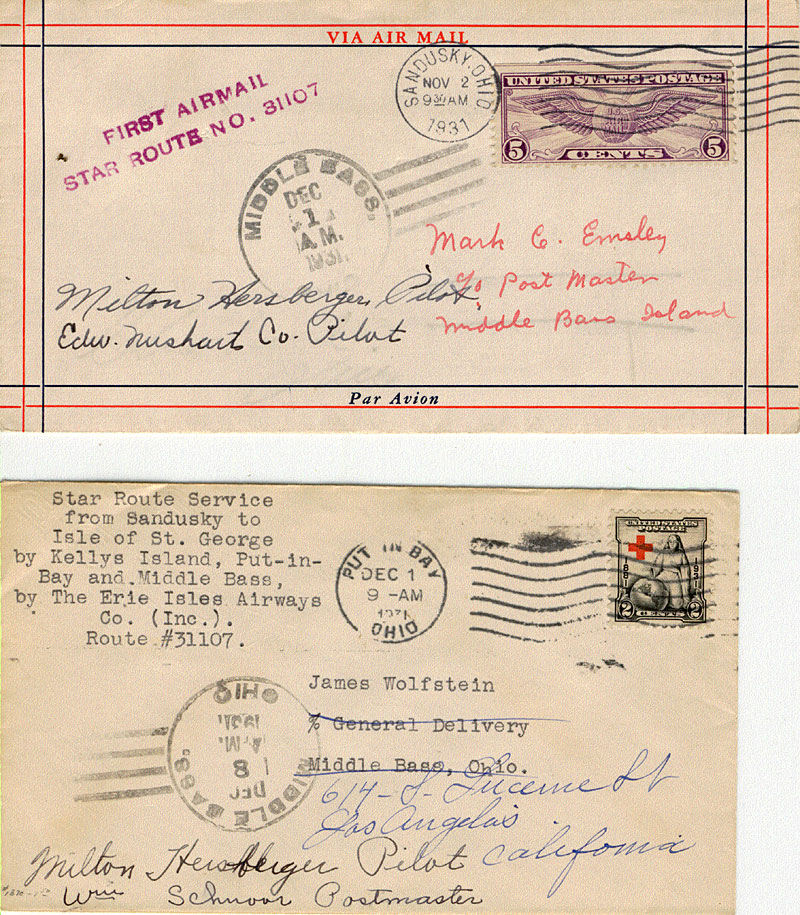 VIA AIR MAIL
FIRST AIRMAIL
STAR ROUTE NO. 31107
SANDUSKY, OHIO
NOV 2
9 30 AM
1931
UNITED STATES POSTAGE
5 CENTS 5
MIDDLE BASS,
DEC
1
A.M.
1931
Mark C. Emsley
c/o Post Master
Middle Bass Island
Milton Hersberger, Pilot
Edw. Co. Pilot
Par Avion
Star Route Service
from Sandusky to
Isle of St. George
by Kellys Island, Put-in-
Bay and Middle Bass,
by The Erie Isles Airways
Co. (Inc.).
Route #31107.
PUT IN BAY
DEC 1
9 -AM
1931
OHIO
UNITED STATES
POSTAGE
1881 1931
2 CENTS 2
James Wolfstein
% General Delivery
Middle Bass, Ohio.
614- S. Lucerne St
Los Angelas
California
MIDDLE BASS.
DEC
8
A.M.
1931
OHIO
Milton Hersberger Pilot
Wm Schnoor Postmaster